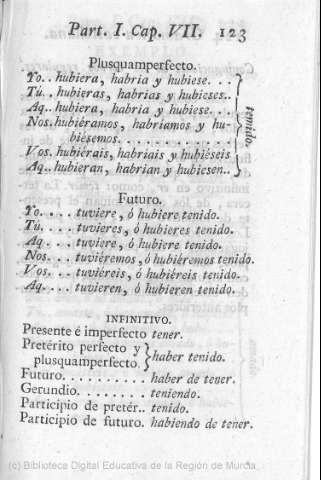 Part. I. Cap. VII. 123
Plusquamperfecto.
Yo.. hubiera, habria y hubiese. . .
Tú.. hubieras, habrias y hubieses..
Aq.. hubiera, habria y hubiese. . .
Nos. hubiéramos, habriamos y hu-
biésemos. . . . . . . . . . . . .
Vos. hubiérais, habriais y hubiéseis
Aq.. hubieran, habrian y hubiesen..
tenido.
Futuro.
Yo. . . . tuviere, ó hubiere tenido.
Tú. . . . tuvieres, ó hubieres tenido.
Aq. . . . tuviere, ó hubiere tenido.
Nos. . . tuviéremos, ó hubiéremos tenido.
Vos. . . tuviéreis, ó hubiéreis tenido.
Aq. . . . tuvieren, ó hubieren tenido.
INFINITIVO.
Presente é imperfecto tener.
Pretérito perfecto y
plusquamperfecto. } haber tenido.
Futuro. . . . . . . . . . haber de tener.
Gerundio. . . . . . . . teniendo.
Participio de pretér.. tenido.
Participio de futuro. habiendo de tener.
(c) Biblioteca Digital Educativa de la Región de Murcia